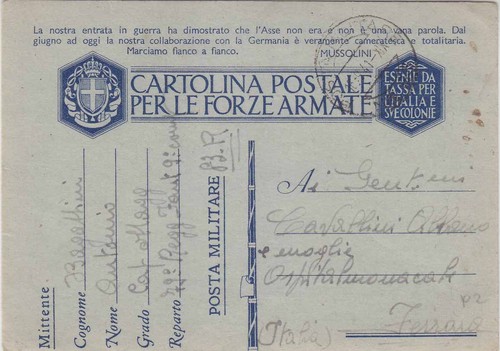 La nostra entrata in guerra ha dimostrato che l'Asse non era e non è una vana parola. Dal
giugno ad oggi la nostra collaborazione con la Germania è veramente cameratesca e totalitaria.
Marciamo fianco a fianco.
MUSSOLINI
CARTOLINA POSTALE
PER LE FORZE ARMATE
ESENTE DA
TASSA PER
L'ITALIA E
SVE COLONIE
Mittente
Cognome
Nome Antonio
Grado
Reparto
POSTA MILITARE
Ai Gent.mi
Cavallini
e moglie
Ferrara
(Italia)